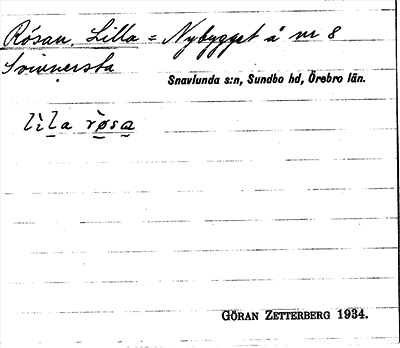 Rösan, Lilla = Nybygget å nr 8
Svinnersta
Snavlunda s:n, Sundbo hd, Örebro län.
lìla rø̀sa
GÖRAN ZETTERBERG 1934.